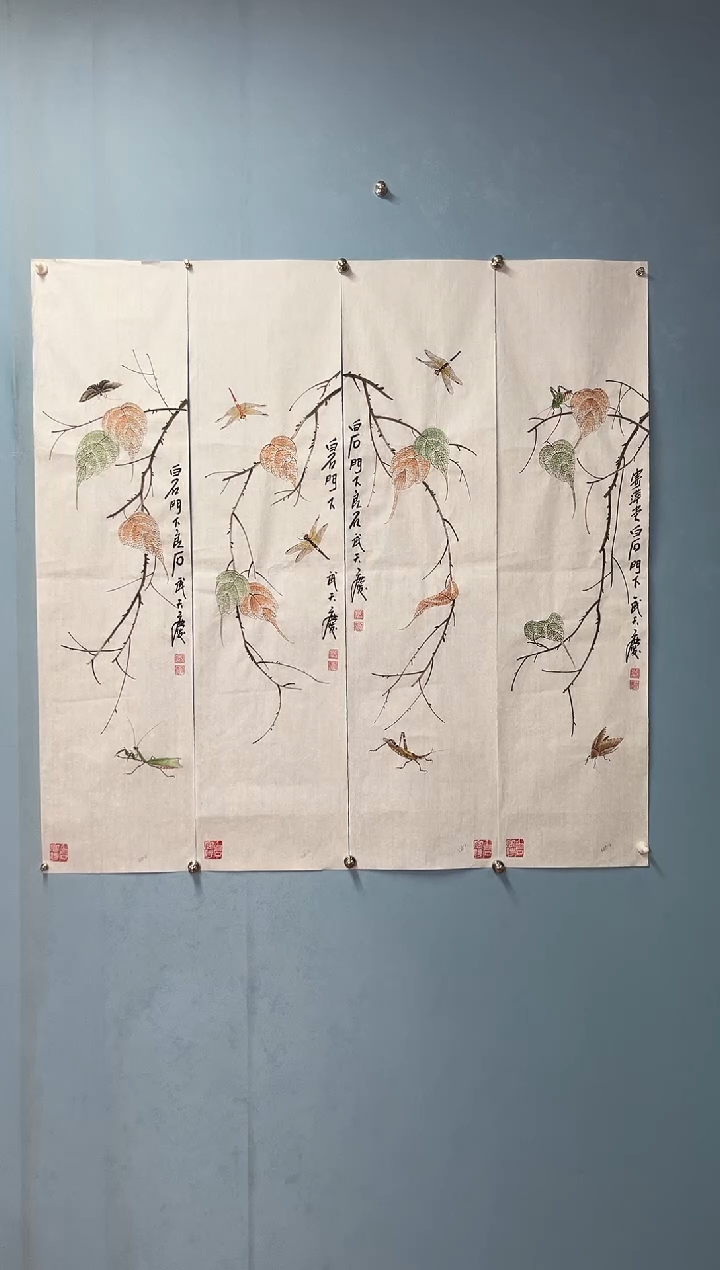 寄萍堂白石門下 武天慶
白石門下良石武天慶
白石門下
武天慶
白石門下良石 武天慶